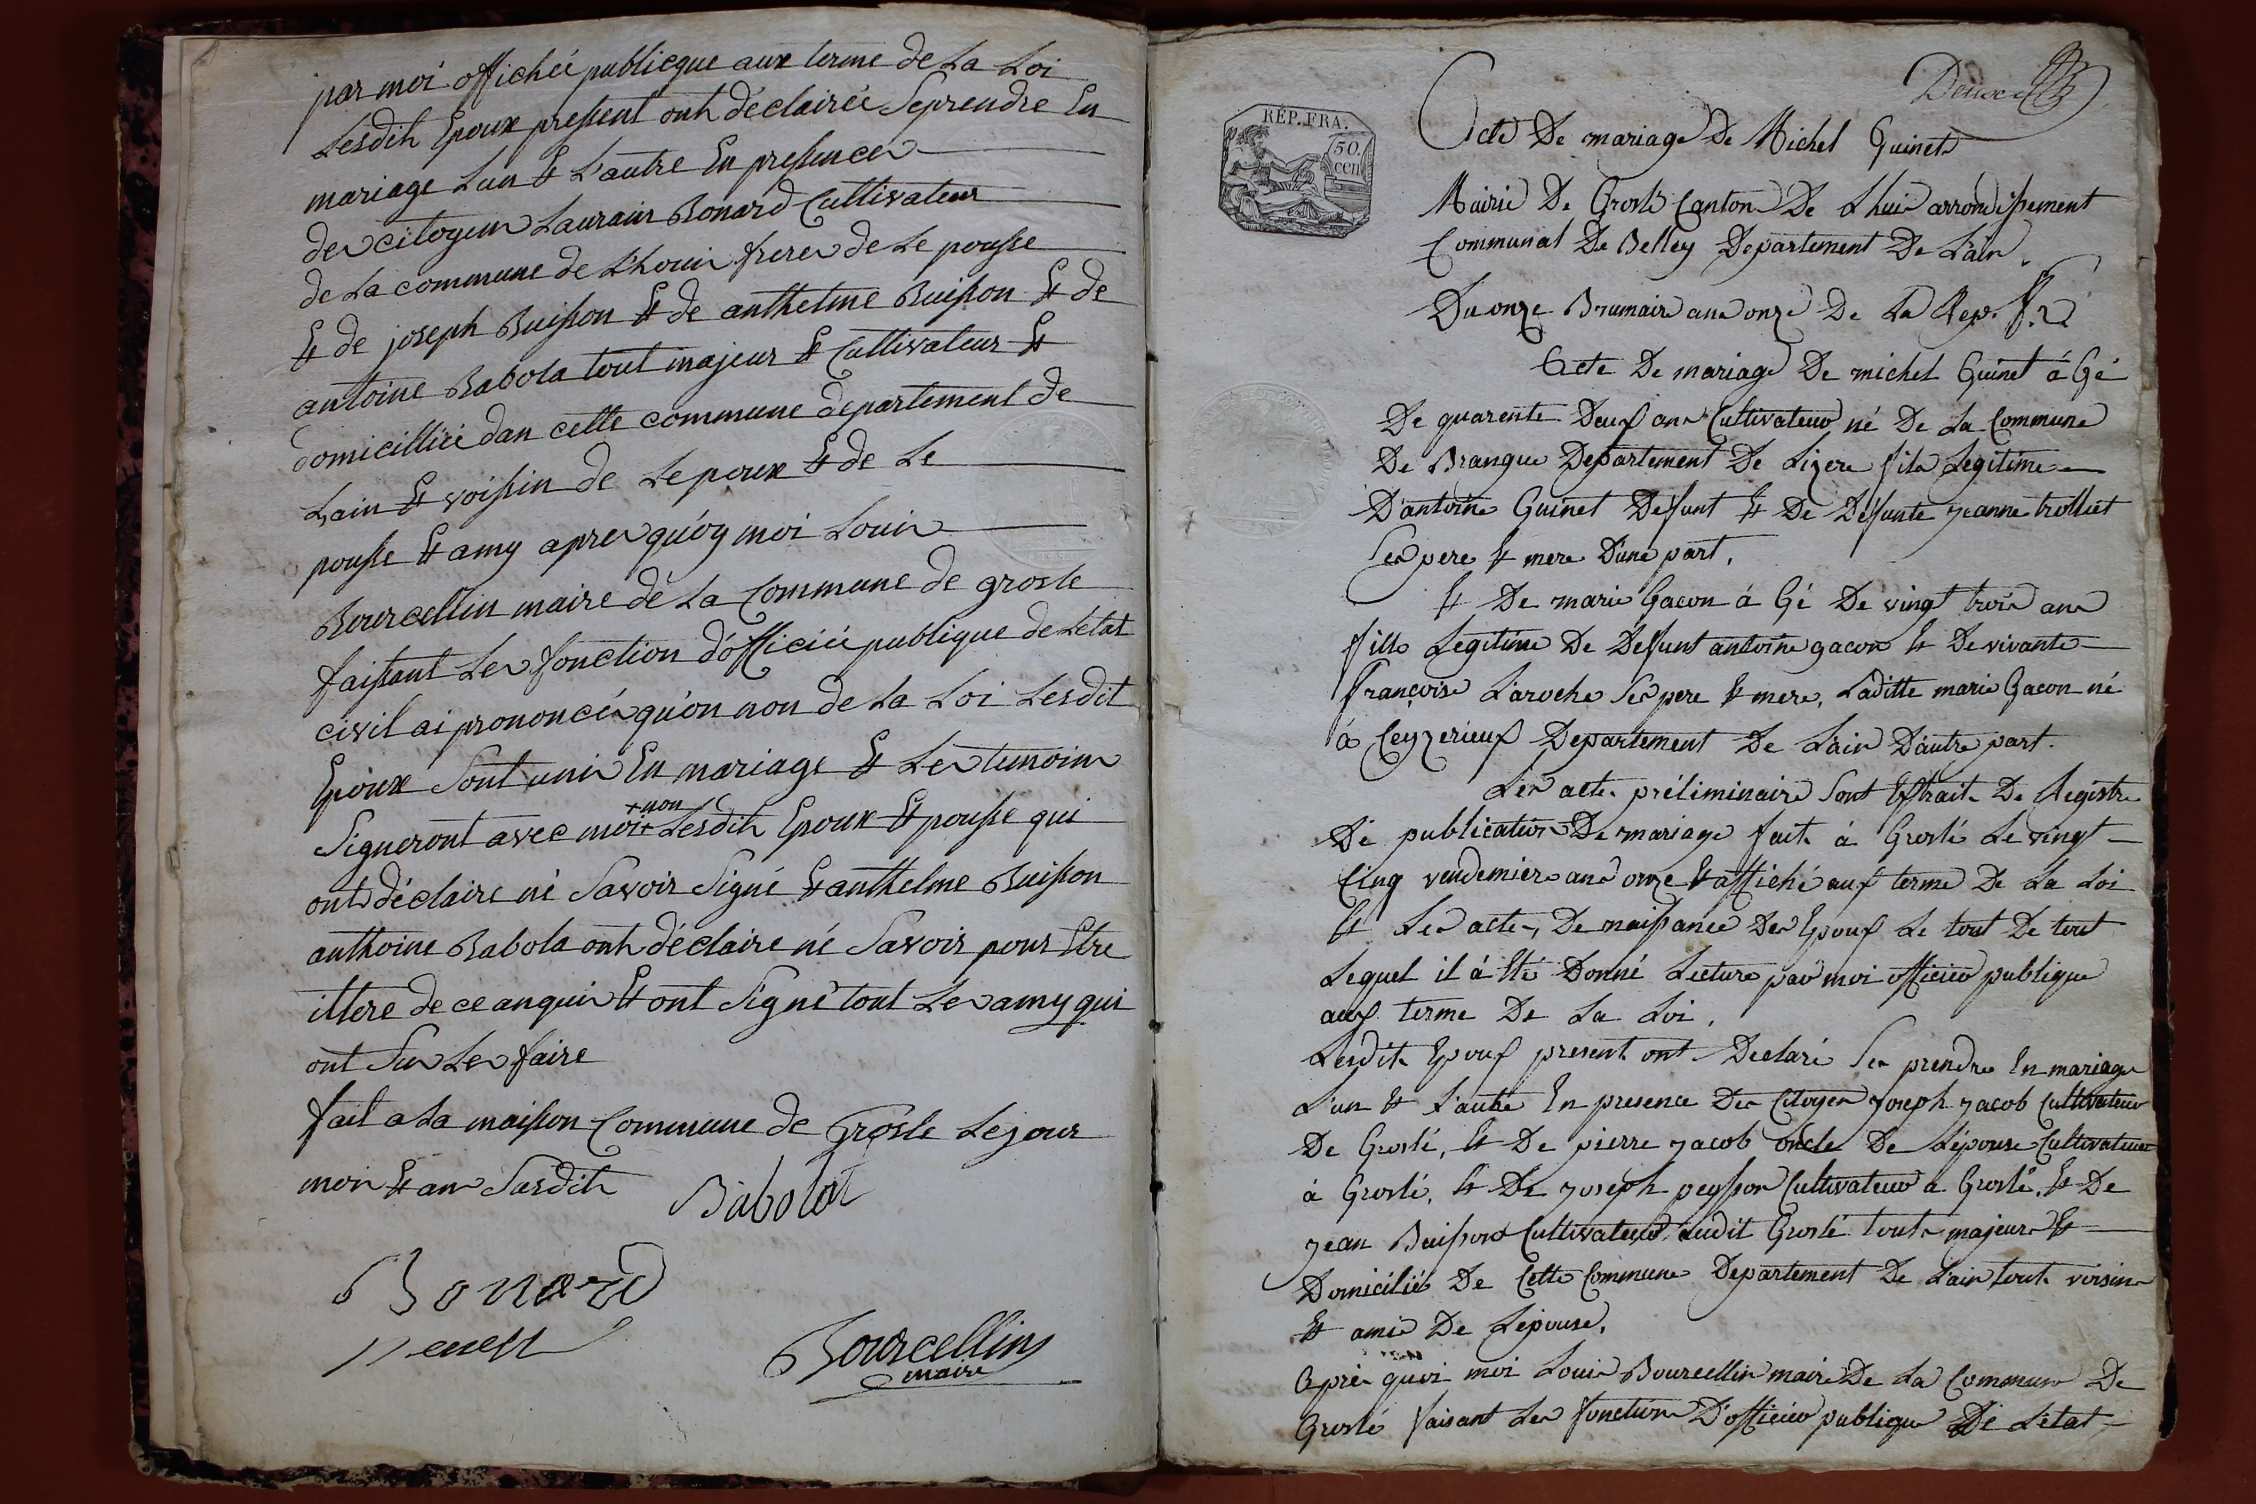 par moi offichéé publicque aux terme de La Loi
Lesdith Epoux pressent onth déclairéé Seprendre En
mariage Lun Et L'autre En pressence
des citoyens Laurain Bonard Cultivateur
de La commune de L'houis freres de Le pousse
Et de joseph Buisson Et de anthelme Buisson Et de
antoine Babola tout majeur Et Cultivateur Et
domicilliéé dan cette commune departement de
Lain Et voissin de Lepoux Et de Le
pousse Et amy apres qu'oy moi Louis
Bourcellin maire de La Commune de grosle
faissant Les fonction d'officiéé publique de Letat
civil ai prononcé qu'on non de La Loi Lesdit
Epoux Sont unis En mariage Et Les temoins
+ non
Signeront avec moi + Lesdith Epoux Et pousse qui
onth déclaire né Savoir Signé Et anthelme Buisson
anthoine Babola onth déclaire né Savoir pour Etre
ittere de ce anquis Et ont Signé tout Les amy qui
ont Su Les faire
fait a La maisson Commune de Grosle Lejour
mois Et an Susdith
Babolat
Bonard
Bourcellin
maire
RÉP. FRA.
50.
cen
Acte De mariage De Michel Guinet
Mairie De Groslé Canton De Lhuis arrondissement
Communal De Belley Departement De L'ain.
Du onze Brumaire ans onze De La Rep. f.
Acte De mariage De michel Guinet á Gé
De quarente Deux ans Cultivateur né De La Commune
De Brangue Departement De Lizere fils Legitime
D'antoine Guinet Defunt Et De Défunte Jeanne trolliet
Ses pere Et mere D'une part.
Et De marie Gacon á Gé De vingt trois ans
fille Legitime De Défunt antoine gacon Et De vivante
françoise Laroche Ses pere Et mere, Laditte marie Gacon né
á Ceyzerieux Departement De L'ain D'autre part.
Les acte préliminaire Sont Extrait De Registre
De publication De mariage fait á Groslé Le vingt
Cinq vendemiere ans onze Et affiché aux terme De La Loi
Et Les acte De naissance Des Epoux Le tout De tout
Lequel il á Eté Donné Lecture par moi officier publique
aux terme De La Loi.
Lesdit Epoux present ont Declaré Se prendre En mariage
L'un Et L'autre En presence Des Citoyen Joseph Jacob Cultivateur
De Groslé, Et De pierre Jacob oncle De Lépouse Cultivateur
á Groslé, Et De Joseph peysson Cultivateur a Groslé, Et De
Jean Buisson Cultivateur audit Groslé touts majeurs Et
Domicilié De Cette Commune Departement De Lain touts voisins
Et amis De Lépouse.
Apres quoi moi Louis Bourcellin maire De La Commune De
Groslé faisant Les fonction D'officier publique De Létat